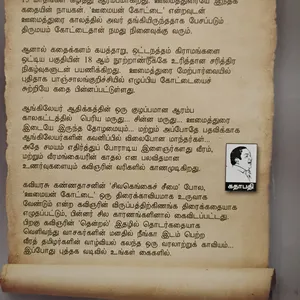 கதையின் நாயகன், 'ஊமையன் கோட்டை' என்றவுடன்
ஊமைத்துரை காலத்தில் அவர் தங்கியிருந்ததாக பேசப்படும்
திருமயம் கோட்டைதான் நமது நினைவுக்கு வரும்.
ஆனால் கதைக்களம் கயத்தாறு, ஒட்டநத்தம் கிராமங்களை
ஒட்டிய பகுதியின் 18 ஆம் நூற்றாண்டுக்கே உரித்தான சரித்திர
நிகழ்வுகளுடன் பயணிக்கிறது. ஊமைத்துரை மேற்பார்வையில்
புதிதாக பாஞ்சாலங்குறிச்சியில் எழுப்பிய கோட்டையைச்
சுற்றியே கதை பின்னப்பட்டுள்ளது.
ஆங்கிலேயர் ஆதிக்கத்தின் ஒரு குழப்பமான ஆரம்ப
காலகட்டத்தில் பெரிய மருது... சின்ன மருது... ஊமைத்துரை
இடையே இருந்த தோழமையும்... மற்றும் அப்போதே பதவிக்காக
ஆங்கிலேயர்களின் கவனிப்பில் விலைபோன மாந்தர்கள்...
அதே சமயம் எதிர்த்துப் போராடிய இளைஞர்களது வீரம்,
மற்றும் வீரமங்கையரின் காதல் என பலவிதமான
உணர்வுகளையும் கவிஞரின் வரிகளில் காணமுடிகிறது.
கவியரசு கண்ணதாசனின் 'சிவகெங்கைச் சீமை' போல,
'ஊமையன் கோட்டை' ஒரு திரைக்காவியமாக உருவாக
வேண்டும் என்ற கவிஞரின் விருப்பத்திற்கிணங்க திரைக்கதையாக
எழுதப்பட்டும், பின்னர் சில காரணங்களினால் கைவிடப்பட்டது.
பிறகு கவிஞரின் 'தென்றல்' இதழில் தொடர்கதையாக
வெளிவந்து வாசகர்களின் மனதில் நீங்கா இடம் பெற்ற
வீரத் தமிழர்களின் வாழ்வியல் கலந்த ஒரு வரலாற்றுக் காவியம்...
இப்போது புத்தக வடிவில் உங்கள் கைகளில்.